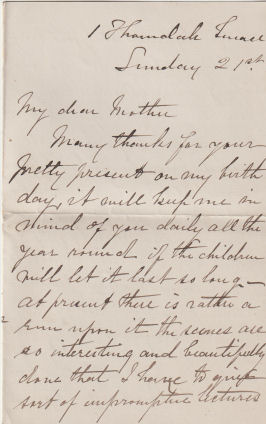 1 Thorndale Terrace
Sunday 21st.
My dear Mother
Many thanks for your
pretty present on my birth
day, it will keep me in
mind of you daily all the
year round if the children
will let it last so long —
at present there is rather a
run upon it the scenes are
so interesting and beautifully
done that I have to give
sort of impromptu lectures